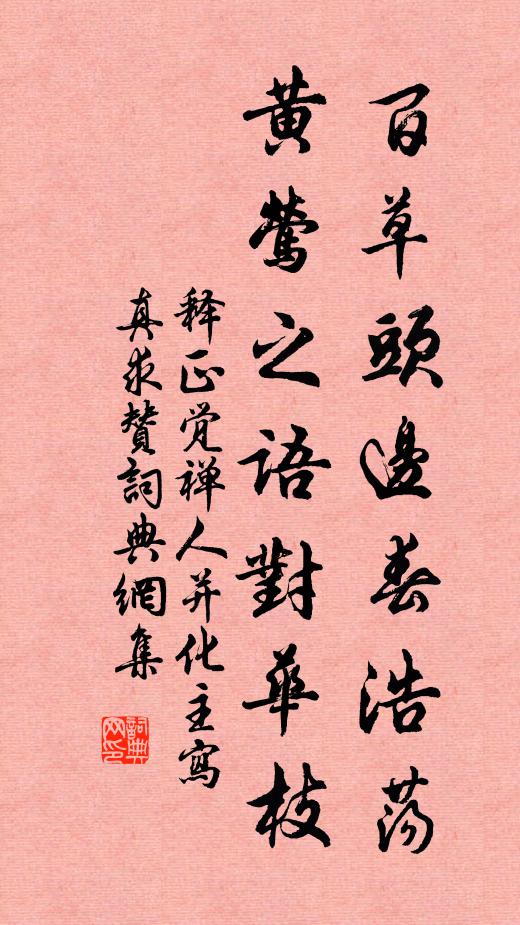 百草頭邊春浩蕩
黄鶯之語對華枝
释正觉禅人并化主寫
真求贊詞典網集
詞典網印